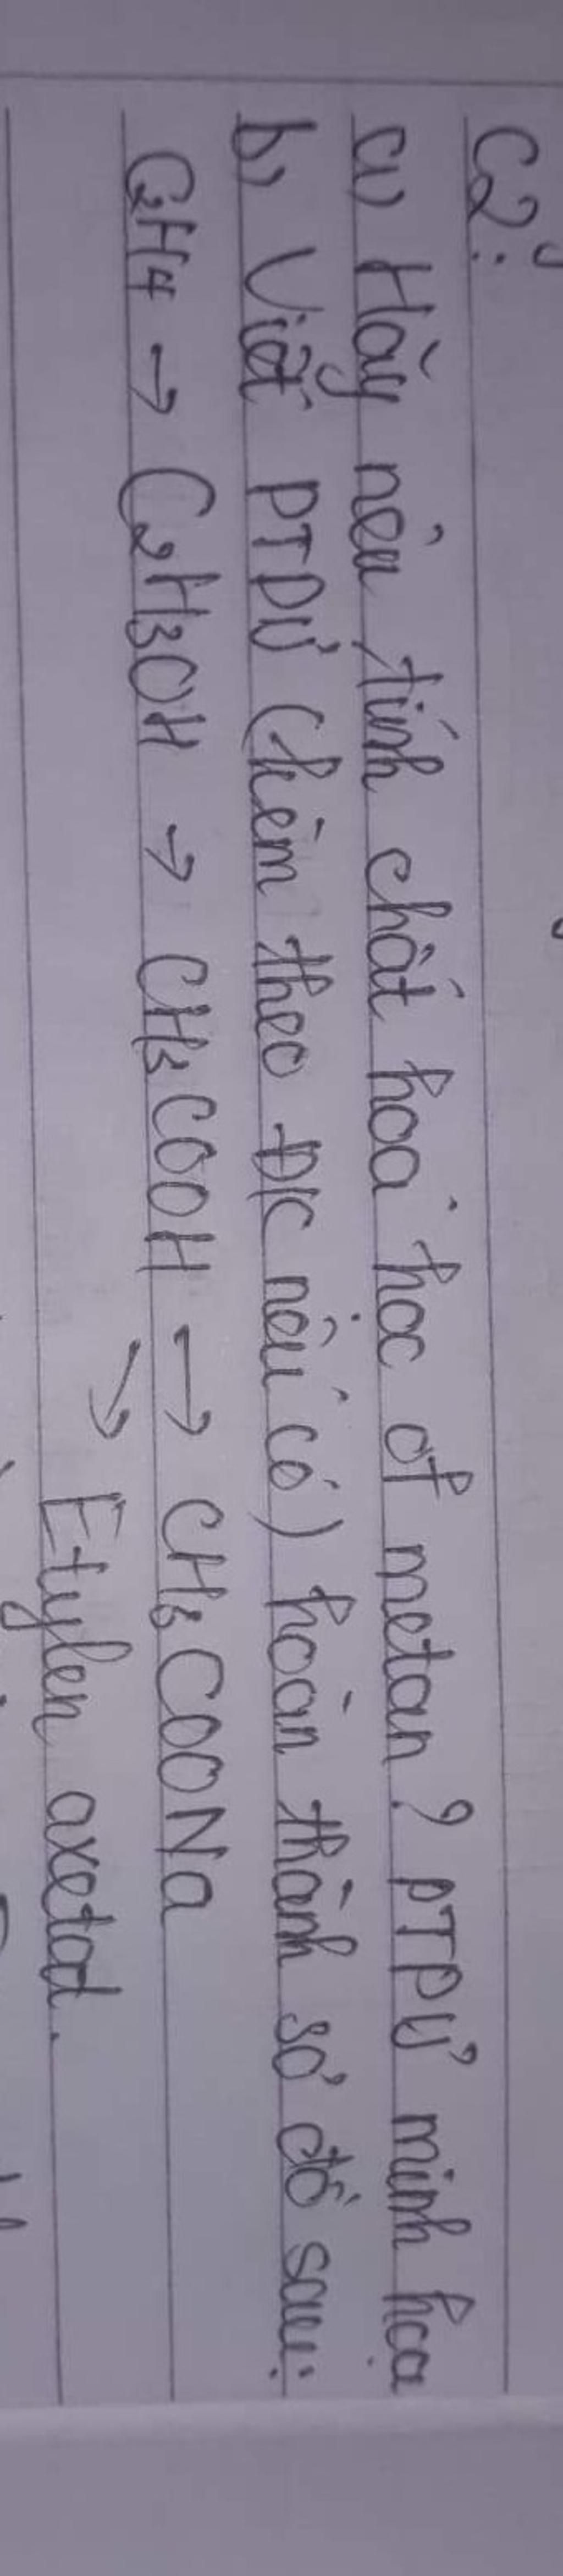 C2:
a) Hãy nêu tính chất hoá học of metan? PTPƯ minh họa
b) Viết PTPƯ (kèm theo ĐK nếu có) hoàn thành sơ đồ sau:
C2H4 → C2H3OH → CH3COOH → CH3COONa
→ Etylen axetat.